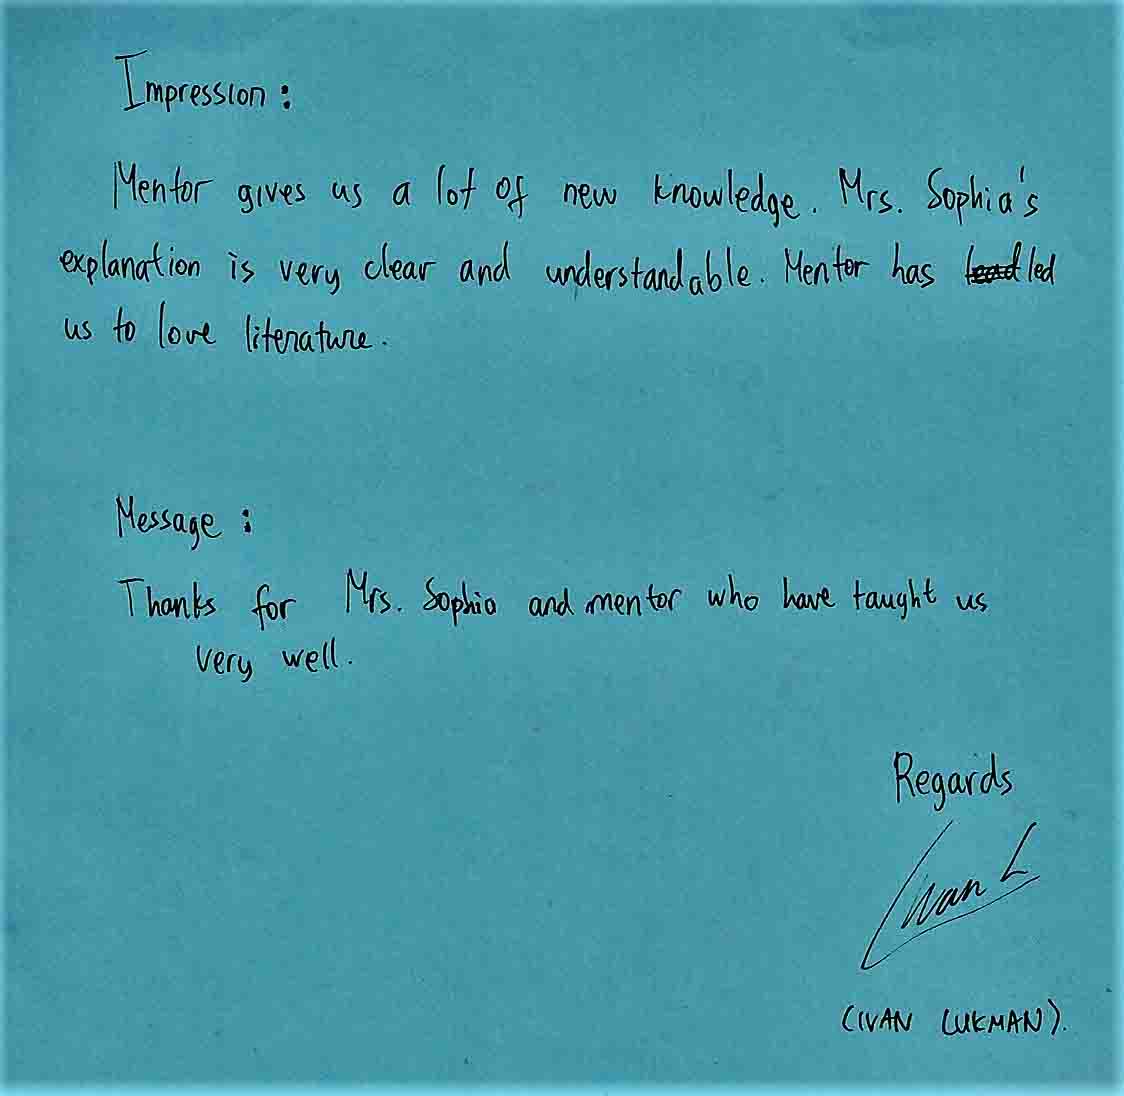 Impression :
Mentor gives us a lot of new knowledge. Mrs. Sophia's
explanation is very clear and understandable. Mentor has lead led
us to love literature.
Message :
Thanks for Mrs. Sophia and mentor who have taught us
very well.
Regards
Ivan L
(IVAN LUKMAN).